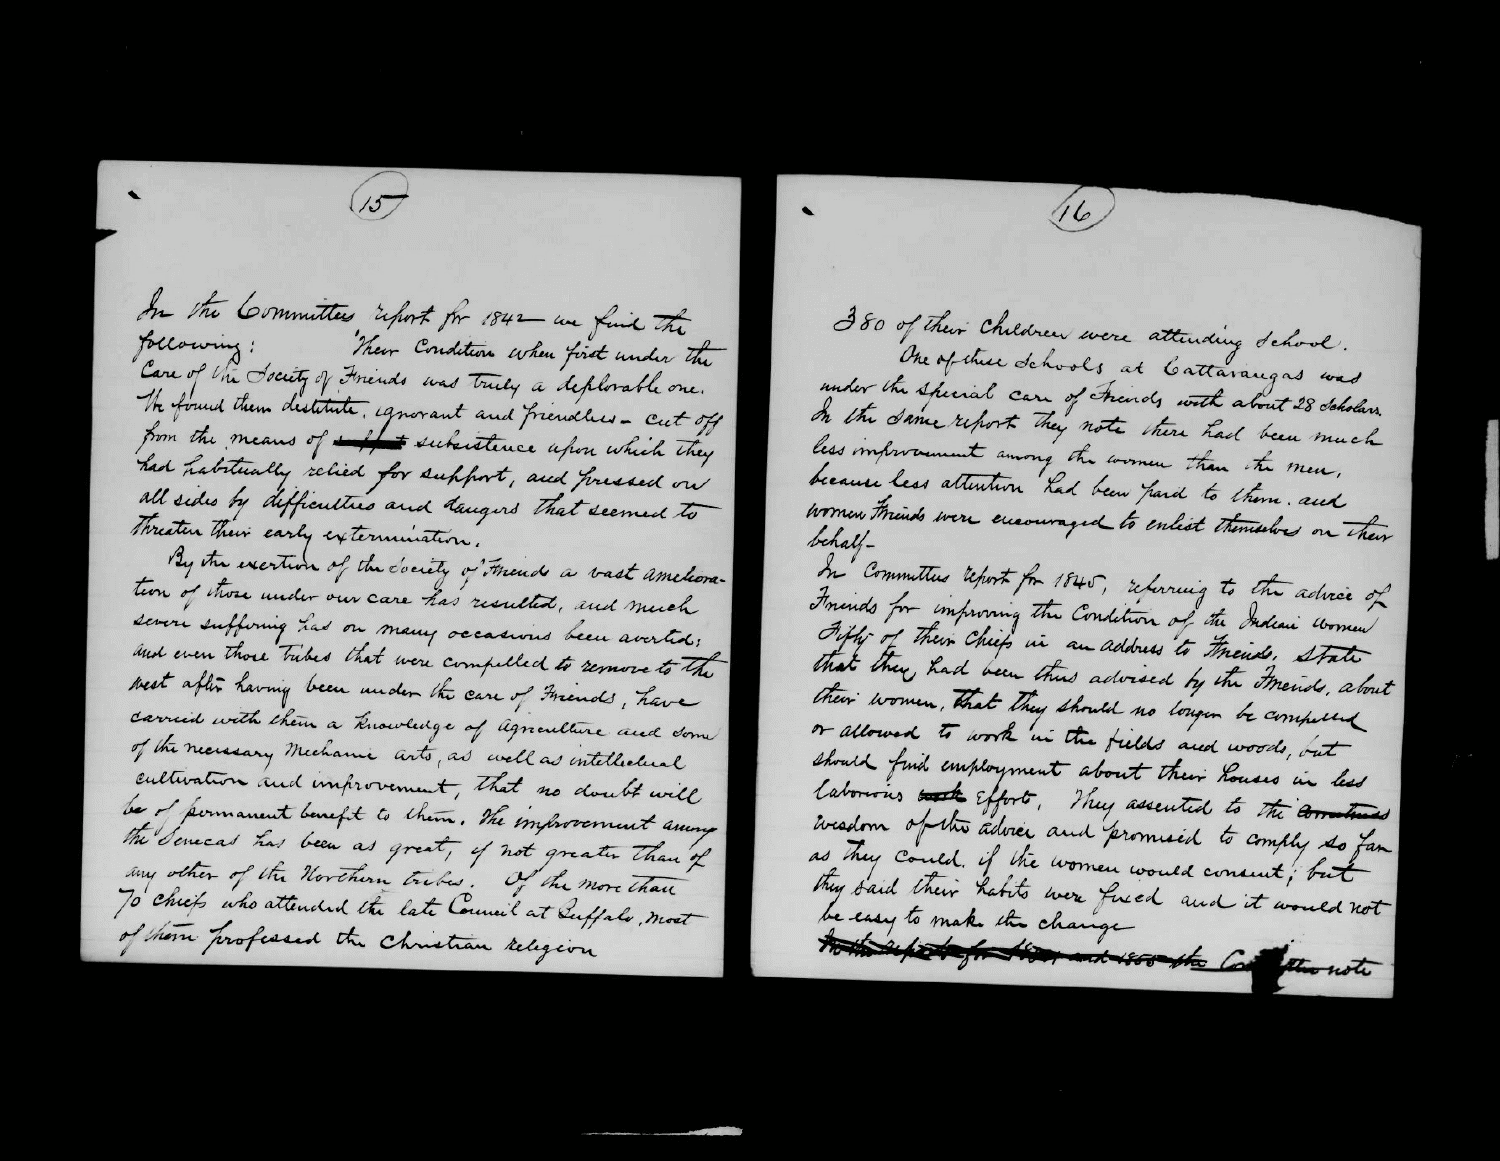 15
In the Committees report for 1842 we find the
following: 'Their Condition when first under the
Care of the Society of Friends was truly a deplorable one.
We found them destitute, ignorant and friendless - cut off
from the means of subsistence upon which they
had habitually relied for support, and pressed on
all sides by difficulties and dangers that seemed to
threaten their early extermination.
By the exertion of the Society of Friends a vast ameliora-
tion of those under our care has resulted, and much
severe suffering has on many occasions been averted;
and even those tribes that were compelled to remove to the
west after having been under the care of Friends, have
carried with them a knowledge of agriculture and some
of the necessary Mechanic arts, as well as intellectual
cultivation and improvement, that no doubt will
be of permanent benefit to them. The improvement among
the Senecas has been as great, if not greater than of
any other of the Northern tribes. Of the more than
70 chiefs who attended the late Council at Buffalo, most
of them professed the Christian religion
16
380 of their Children were attending School.
One of these Schools at Cattaraugas was
under the special care of Friends with about 28 Scholars.
In the same report they note there had been much
less improvement among the women than the men,
because less attention had been paid to them. and
women Friends were encouraged to enlist themselves on their
behalf -
In Committees report for 1845, referring to the advice of
Friends for improving the Condition of the Indian women
Fifty of their Chiefs in an address to Friends, state
that they had been thus advised by the Friends, about
their women, that they should no longer be compelled
or allowed to work in the fields and woods, but
should find employment about their houses in less
laborious work efforts. They assented to the
wisdom of the advice and promised to comply so far
as they could, if the women would consent; but
they said their habits were fixed and it would not
be easy to make the change
In the reports for and 1850 the note